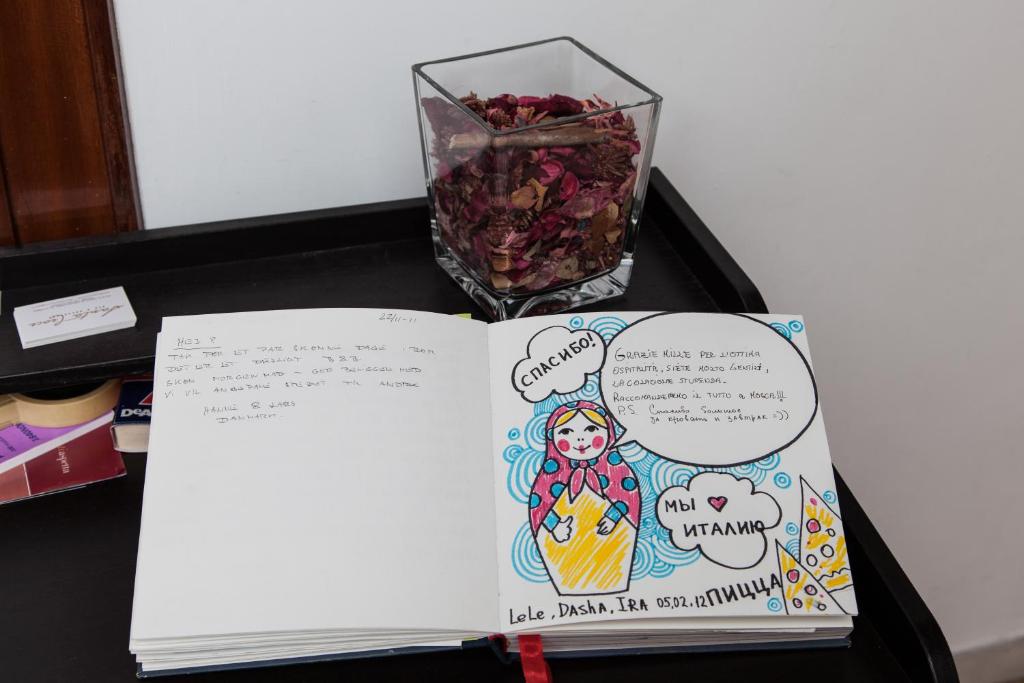 22/11-11
HEJ!
TAK FOR ET PAR SKØNNE DAGE
DET ER ET DEJLIGT B&B.
SKØN MORGENMAD - GOD BELIGGENHED
VI VIL ANBEFALE STEDET TIL ANDRE
HANNE & LARS
DANMARK
СПАСИБО!
GRAZIE MILLE PER L'OTTIMA
OSPITALITA, SIETE MOLTO GENTILI,
LA COLAZIONE STUPENDA.
RACCOMANDEREMO IL TUTTO A MOSCA!!!
P.S. Спасибо большое
за кровать и завтрак =))
МЫ ♥
ИТАЛИЮ
ПИЦЦА
LeLe, DASHA, IRA 05.02.12
DeA